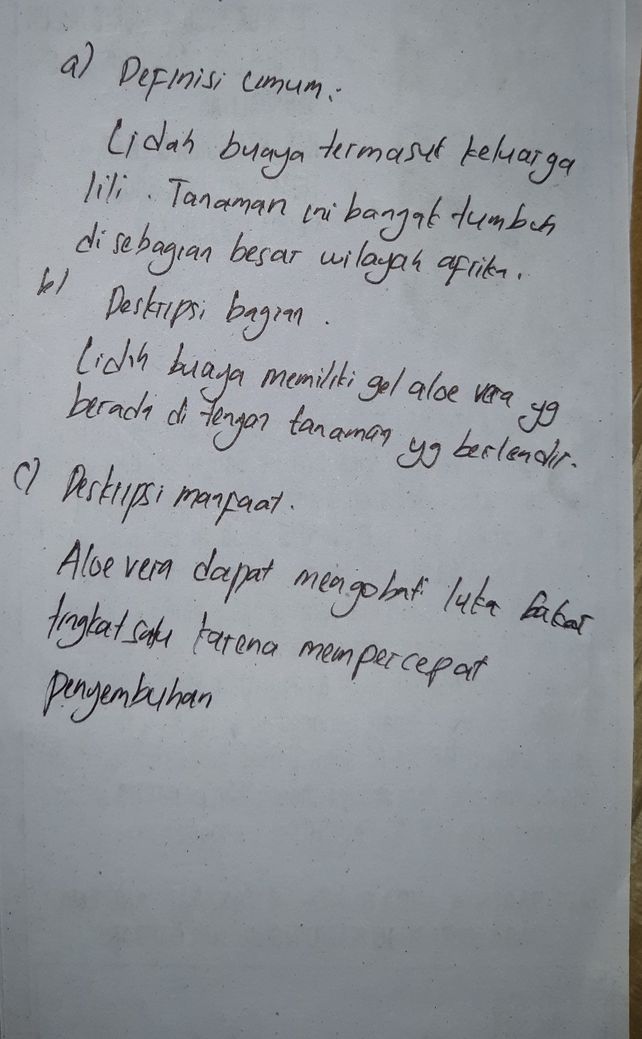 a) Definisi umum:
Lidah buaya termasuk keluarga
lili. Tanaman ini bangak tumbuh
di sebagian besar wilayah afrika.
b)
Deskripsi bagian.
Lidah buaya memiliki gel aloe vera yg
berada di tengah tanaman yg berlendir.
c) Deskripsi manfaat.
Aloe vera dapat mengobati luka bakar
tingkat satu karena mempercepat
penyembuhan